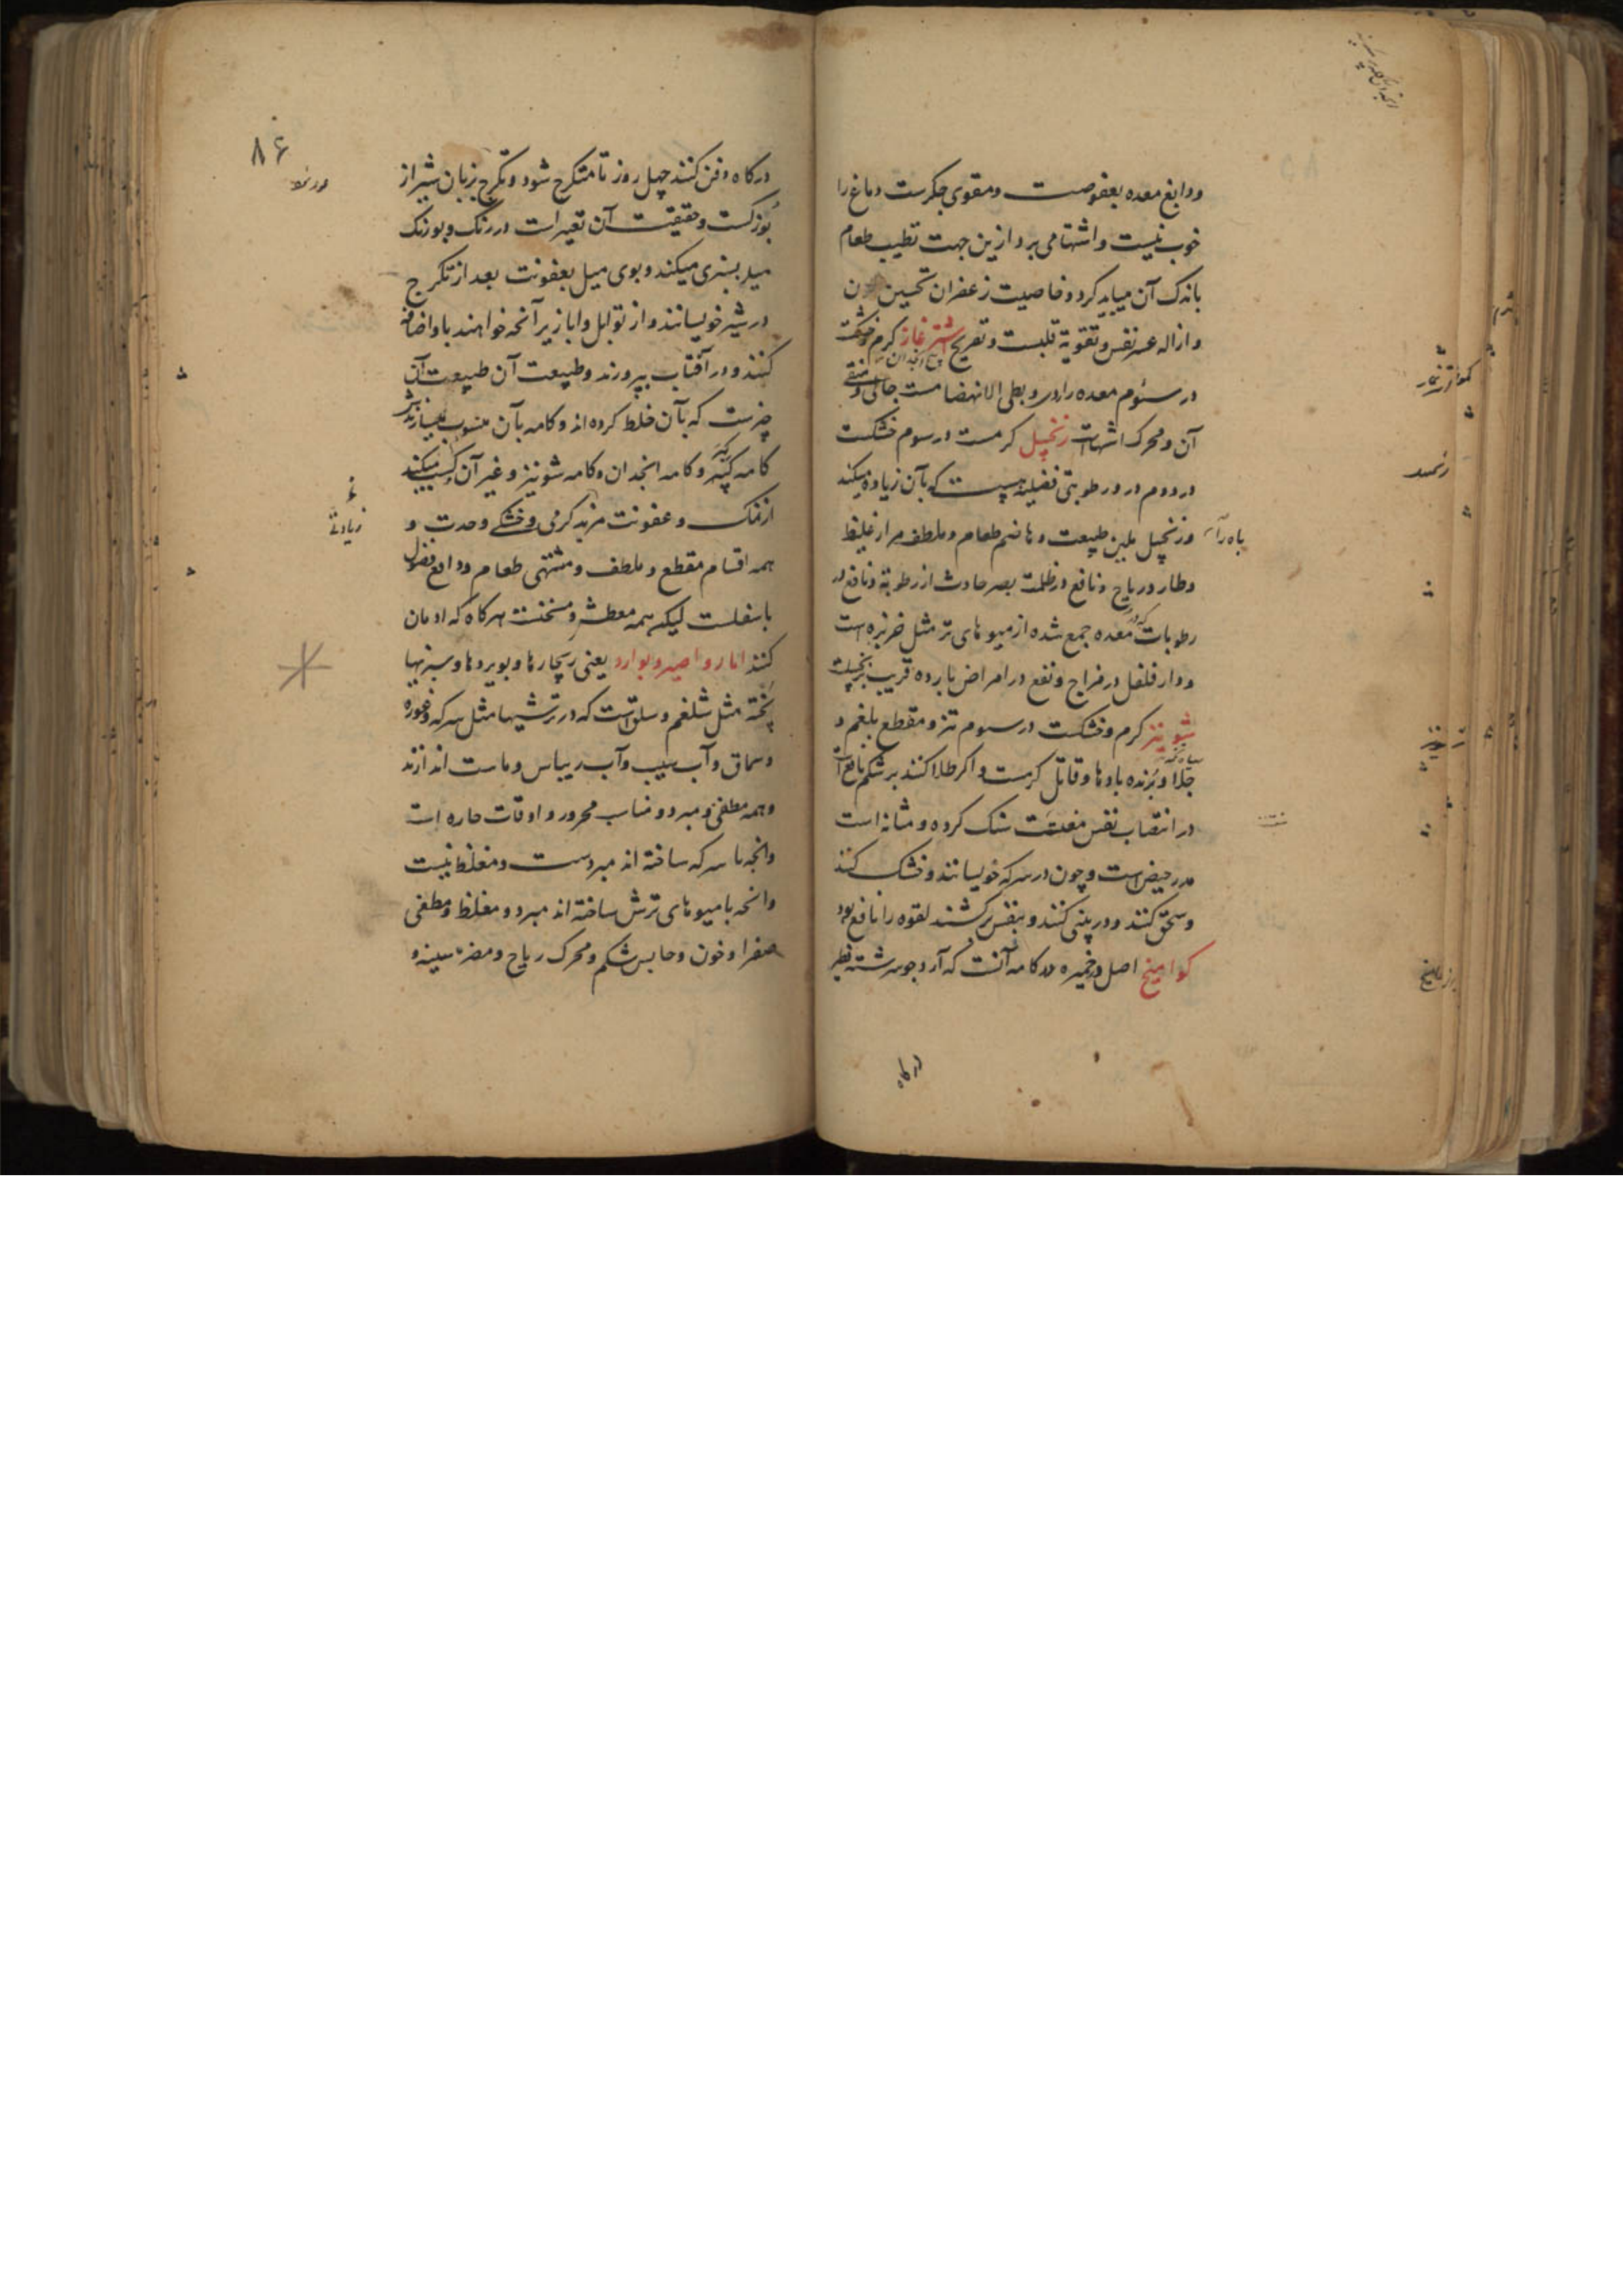 ودابغ معده بعفوصت ومقوی جکرست دماغ را
خوب نیست واشتها می برد ازین جهت تطیب طعام
باندک آن میباید کرد وخاصیت زعفران تحسین لون
وازاله عسر نفس وتقویة قلبست وتفریح اشترغاز کرم وخشکست
در سئوم معده را وبطی الانهضامست
آن ومحرک اشتهاست زنجپیل کرمست در سوم خشکست
در دوم ودر رطوبتی فضیله هست که بآن زیاده میکند
وزنجپیل ملین طبیعت وهاضم طعام وملطف هر از غلیظ
باه را
وطارد ریاح ونافع در ظلمت بصر حادث از رطوبة ونافع در
رطوبات که در معده جمع شده از میوهای تر مثل خربزه است
ودار فلفل در مزاج ونفع در امراض بارده قریب بزنجپیلست
شونیز کرم وخشکست در سوم تیز ومقطع بلغم و
جلا وبرنده بادها وقاتل کرمست واکر طلا کنند بر شکم نافع است
در انتصاب نفس مفتت سنک کرده ومثانه است
مدر حیض است وچون در سرکه خویسانند وخشک کنند
وسحق کنند ودر پنی کنند وبنفس برکشند لقوه را نافع بود
کوامیخ اصل وخمیره کامه آنست که آرد جو سرشته فطیر
در کاه
۸۶
در کاه دفن کنند چهل روز تا متکرج شود وتکرج بزبان شیراز
بوزکست وحقیقت آن تغیر است در رنک وبو رنک
میل بسبزی میکند وبوی میل بعفونت بعد از تکرج
در شیر خویسانند واز توابل وابازیر آنحه خواهند باو اضافه
کنند ودر آفتاب بپرورند وطبیعت آن طبیعت آن
چیزست که بآن خلط کرده اند وکامه بآن منسوب میسازند
کامه کبر وکامه انجدان وکامه شونیز وغیر آن کسب میکند
از نمک وعفونت مزید کرمی وخشکی وحدت و
همه اقسام مقطع وملطف ومشتهی طعام ودافع فضول
باسفلست لیکن همه معطش ومسخنند هرکاه که ادمان
کنند اما رواصیر وبوارد یعنی ریچارها وبوبردها وسبزیها
پخته مثل شلغم وسلق است که در ترشیها مثل سرکه وغوره
وسماق وآب سیب وآب ریباس وماست اندازند
وهمه مطفی ومبرد ومناسب محرور واوقات حاره است
وانحه با سرکه ساخته اند مبردست ومغلظ نیست
وانحه با میوهای ترش ساخته اند مبرد ومغلظ ومطفی
صفرا وخون وحابس شکم ومحرک ریاح ومضر سینه و